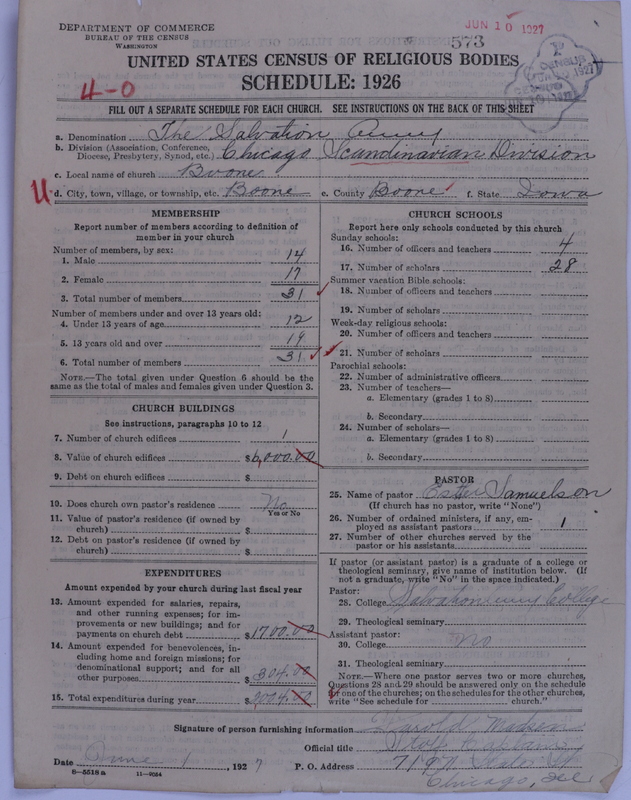 DEPARTMENT OF COMMERCE
BUREAU OF THE CENSUS
WASHINGTON
JUN 10 1927
573
UNITED STATES CENSUS OF RELIGIOUS BODIES
SCHEDULE: 1926
4-0
FILL OUT A SEPARATE SCHEDULE FOR EACH CHURCH. SEE INSTRUCTIONS ON THE BACK OF THIS SHEET
a. Denomination The Salvation Army
b. Division (Association, Conference, Diocese, Presbytery, Synod, etc.) Chicago Scandinavian Division
c. Local name of church Boone
d. City, town, village, or township, etc. Boone e. County Boone f. State Iowa
MEMBERSHIP
Report number of members according to definition of
member in your church
Number of members, by sex:
1. Male 14
2. Female 17
3. Total number of members 31
Number of members under and over 13 years old:
4. Under 13 years of age 12
5. 13 years old and over 19
6. Total number of members 31
NOTE.—The total given under Question 6 should be
same as the total of males and females given under Question 3.
CHURCH BUILDINGS
See instructions, paragraphs 10 to 12
7. Number of church edifices 1
8. Value of church edifices $6,000.00
9. Debt on church edifices $
10. Does church own pastor's residence No
Yes or No
11. Value of pastor's residence (if owned by
church) $
12. Debt on pastor's residence (if owned by
church) $
EXPENDITURES
Amount expended by your church during last fiscal year
13. Amount expended for salaries, repairs,
and other running expenses; for im-
provements or new buildings; and for
payments on church debt $1700.00
14. Amount expended for benevolences, in-
cluding home and foreign missions; for
denominational support; and for all
other purposes $304.00
15. Total expenditures during year $2004.00
CHURCH SCHOOLS
Report here only schools conducted by this church
Sunday schools:
16. Number of officers and teachers 4
17. Number of scholars 28
Summer vacation Bible schools:
18. Number of officers and teachers
19. Number of scholars
Week-day religious schools:
20. Number of officers and teachers
21. Number of scholars
Parochial schools:
22. Number of administrative officers
23. Number of teachers—
a. Elementary (grades 1 to 8)
b. Secondary
24. Number of scholars—
a. Elementary (grades 1 to 8)
b. Secondary
PASTOR
25. Name of pastor Ester Samuelson
(If church has no pastor, write "None")
26. Number of ordained ministers, if any, em-
ployed as assistant pastors 1
27. Number of other churches served by the
pastor or his assistants
If pastor (or assistant pastor) is a graduate of a college or
theological seminary, give name of institution below. (If
not a graduate, write "No" in the space indicated.)
Pastor:
28. College Salvation Army College
29. Theological seminary
Assistant pastor:
30. College No
31. Theological seminary
NOTE.—Where one pastor serves two or more churches,
Questions 28 and 29 should be answered only on the schedule
for one of the churches; on the schedules for the other churches,
write "See schedule for church."
Signature of person furnishing information Madsen
Official title
Date June 1, 1927 P. O. Address 713 N. State St
8—5518 a 11—9064 Chicago, Ill